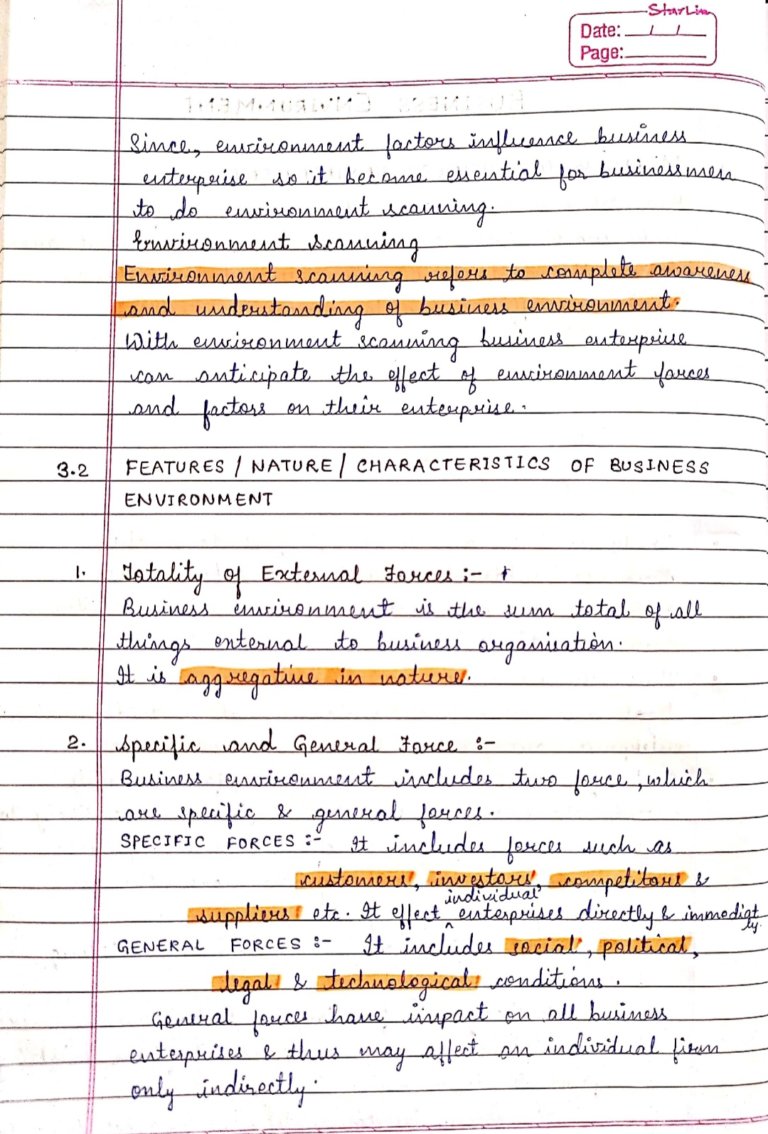 StarLine
Date: / /
Page:
Since, environment factors influence business
enterprise so it become essential for businessmen
to do environment scanning.
Environment scanning
Environment scanning refers to complete awareness
and understanding of business environment.
With environment scanning business enterprise
can anticipate the effect of environment forces
and factors on their enterprise.
3.2 FEATURES / NATURE / CHARACTERISTICS OF BUSINESS
ENVIRONMENT
1. Totality of External Forces :-
Business environment is the sum total of all
things external to business organisation.
It is aggregative in nature.
2. Specific and General Force :-
Business environment includes two force, which
are specific & general forces.
SPECIFIC FORCES :- It includes forces such as
customers, investors, competitors &
individual
suppliers etc. It effect ^ enterprises directly & immediatly.
GENERAL FORCES :- It includes social, political,
legal & technological conditions.
General forces have impact on all business
enterprises & thus may affect an individual firm
only indirectly.